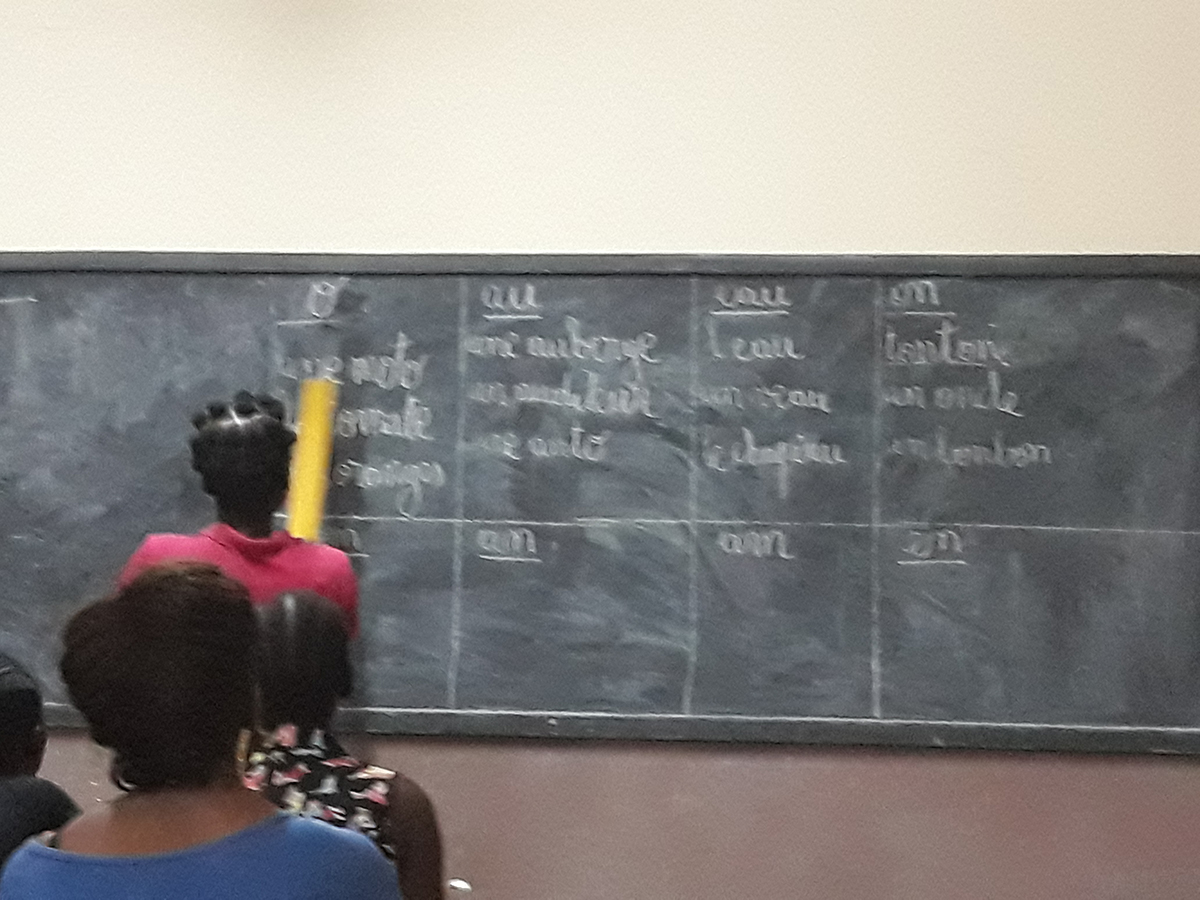 o
au
eau
on
moto
une auberge
l'eau
tonton
tomate
un
un veau
un oncle
oranges
une auto
le chapeau
un bonbon
an
am
on